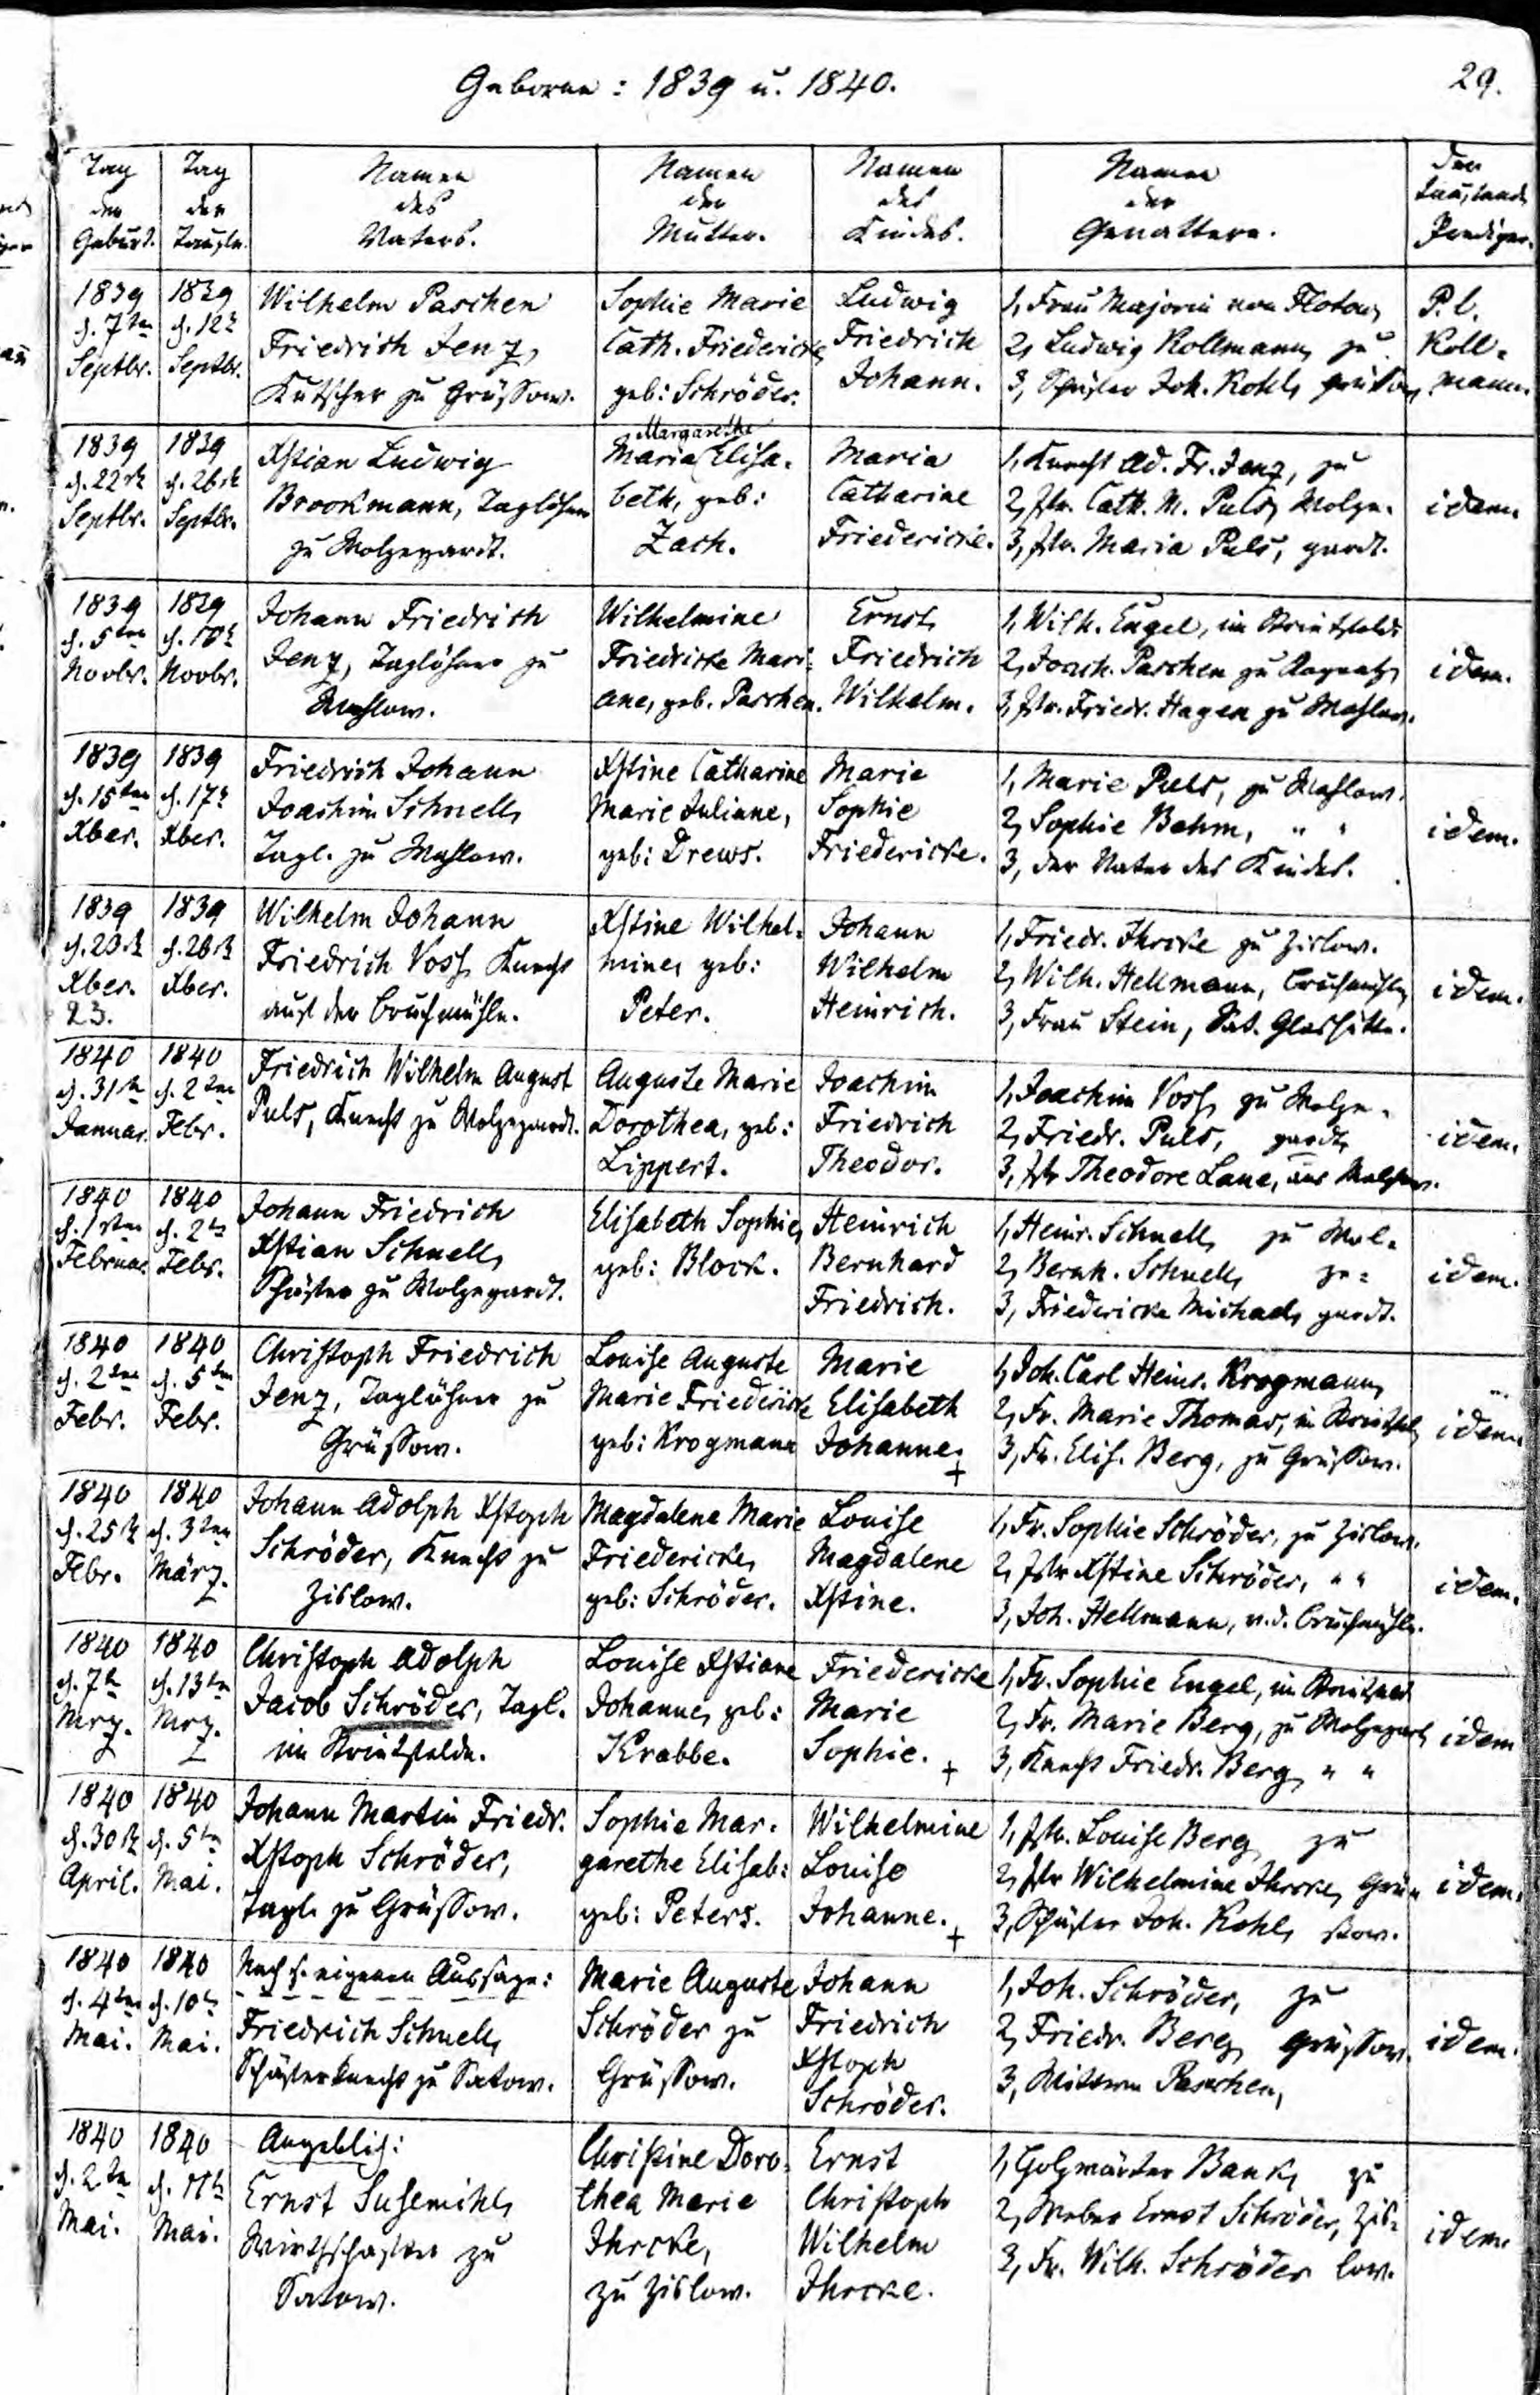 Geborne: 1839 u. 1840.
29.
Tag der Geburt.
Tag der Taufe.
Namen des Vaters.
Namen der Mutter.
Namen des Kindes.
Namen der Gevattern.
Der taufende Prediger.
1839 d. 7ten Septbr.
1839 d. 12t Septbr.
Wilhelm Paschen
Friedrich Jenz,
Kutscher zu Grüssow.
Sophie Marie
Cath. Friedericke,
geb: Schröder.
Ludwig
Friedrich
Johann.
1, Frau Majorin von Flotow,
2, Ludwig Kollmann, zu
3, Schäfer Joh. Kohl, Grüssow,
P. l.
Koll-
mann.
1839 d. 22st Septbr.
1839 d. 26st Septbr.
Xstian Ludwig
Brookmann, Taglöhner
zu Wolzegardt.
Margarethe
Maria (Elisa-
beth, geb:
Zach.
Maria
Catharine
Friedericke.
1, Knecht Ad. Fr. Jenz, zu
2, Jfr. Cath. M. Puls, Wolze-
3, Jfr. Maria Puls, gardt.
idem
1839 d. 5ten Novbr.
1839 d. 10t Novbr.
Johann Friedrich
Jenz, Taglöhner zu
Maslow.
Wilhelmine
Friedricke Mari-
ane, geb. Paschen.
Ernst
Friedrich
Wilhelm.
1, Wilh. Engel, im
2, Joach. Paschen zu
3, Jfr. Friedr. Hagen zu Maslow.
idem.
1839 d. 15ten Xber.
1839 d. 17t Xber.
Friedrich Johann
Joachim Schnell,
Tagl. zu Maslow.
Xstine Catharine
Marie Juliane,
geb: Drews.
Marie
Sophie
Friedericke.
1, Marie Puls, zu Maslow.
2, Sophie Behm, " "
3, der Vater des Kindes.
idem.
1839 d. 23st Xber. 23.
1839 d. 26st Xber.
Wilhelm Johann
Friedrich Voss, Knecht
auf der Bruchmühle.
Xstine Wilhel-
mine, geb:
Peter.
Johann
Wilhelm
Heinrich.
1, Friedr. Ihrcke zu Zislow.
2, Wilh. Hellmann, Bruchmühle,
3, Frau Stein, Sat. Glashütte.
idem.
1840 d. 31st Januar.
1840 d. 2ten Febr.
Friedrich Wilhelm August
Puls, Knecht zu Wolzegardt.
Auguste Marie
Dorothea, geb:
Lippert.
Joachim
Friedrich
Theodor.
1, Joachim Voss, zu Wolze-
2, Friedr. Puls, gardt,
3, Jfr Theodore Lane, aus
idem.
1840 d. 1sten Februar.
1840 d. 2ten Febr.
Johann Friedrich
Xstian Schnell,
Schäfer zu Wolzegardt.
Elisabeth Sophie,
geb: Block.
Heinrich
Bernhard
Friedrich.
1, Heinr. Schnell, zu Wol-
2, Bernh. Schnell, ze-
3, Friedericke Michael, gardt.
idem.
1840 d. 2ten Febr.
1840 d. 5ten Febr.
Christoph Friedrich
Jenz, Taglöhner zu
Grüssow.
Louise Auguste
Marie Friedericke
geb: Krogmann
Marie
Elisabeth
Johanne.
+
1, Joh. Carl Heinr. Krogmann,
2, Fr. Marie Thomas, in
3, Fr. Elis. Berg, zu Grüssow.
idem
1840 d. 25st Febr.
1840 d. 3ten März.
Johann Adolph Xstoph
Schröder, Knecht zu
Zislow.
Magdalene Marie
Friedericke,
geb: Schröder.
Louise
Magdalene
Xstine.
1, Fr. Sophie Schröder, zu Zislow.
2, Jfr Xstine Schröder, " "
3, Joh. Hellmann, v. d. Bruchmühle.
idem.
1840 d. 7t Mrz.
1840 d. 13ten Mrz.
Christoph Adolph
Jacob Schröder, Tagl.
im
Louise Xstiane
Johanne, geb:
Krabbe.
Friedericke
Marie
Sophie. +
1, Fr. Sophie Engel, im
2, Fr. Marie Berg, zu Wolzegardt,
3, Knecht Friedr. Berg, " "
idem
1840 d. 30st April.
1840 d. 5ten Mai.
Johann Martin Friedr.
Xstoph Schröder,
Tagl. zu Grüssow.
Sophie Mar-
garethe Elisab:
geb: Peters.
Wilhelmine
Louise
Johanne. +
1, Jfr. Louise Berg, zu
2, Jfr Wilhelmine Ihrcke, Grüs-
3, Schäfer Joh. Kohl, sow.
idem.
1840 d. 4ten Mai.
1840 d. 10ten Mai.
Nach s. eigenen Aussage:
Friedrich Schnell,
Schäferknecht zu Satow.
Marie Auguste
Schröder zu
Grüssow.
Johann
Friedrich
Xstoph
Schröder.
1, Joh. Schröder, zu
2, Friedr. Berg, Grüssow.
3, Wittwe Paschen,
idem.
1840 d. 2ten Mai.
1840 d. 11t Mai.
Angeblich:
Ernst Susemihl,
Wirthschafter zu
Satow.
Christine Doro-
thea Marie
Ihrcke,
zu Zislow.
Ernst
Christoph
Wilhelm
Ihrcke.
1, Holzwärter Bank, zu
2, Weber Ernst Schröder, Zis-
3, Fr. Wilh. Schröder low.
idem.